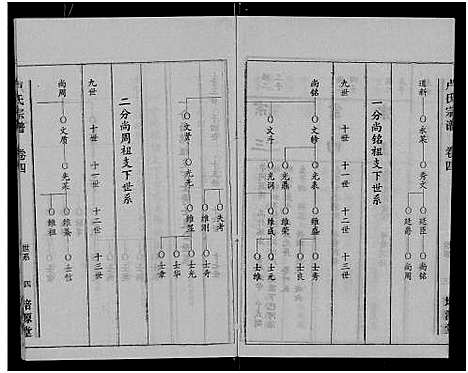 卢氏宗谱 卷四
道新
永茂
秀文
廷臣
尚铭
廷爵
尚周
一分尚铭祖支下世系
九世 十世 十一世 十二世 十三世
尚铭
文修
光表
维盛
士秀
士良
光鼎
维荣
文斗
光润
维成
士元
士维
二分尚周祖支下世系
九世 十世 十一世 十二世 十三世
尚周
文贤
光元
失考
士秀
士光
士华
士章
文质
光英
维祖
卢氏宗谱 卷四
世系
四
培源堂